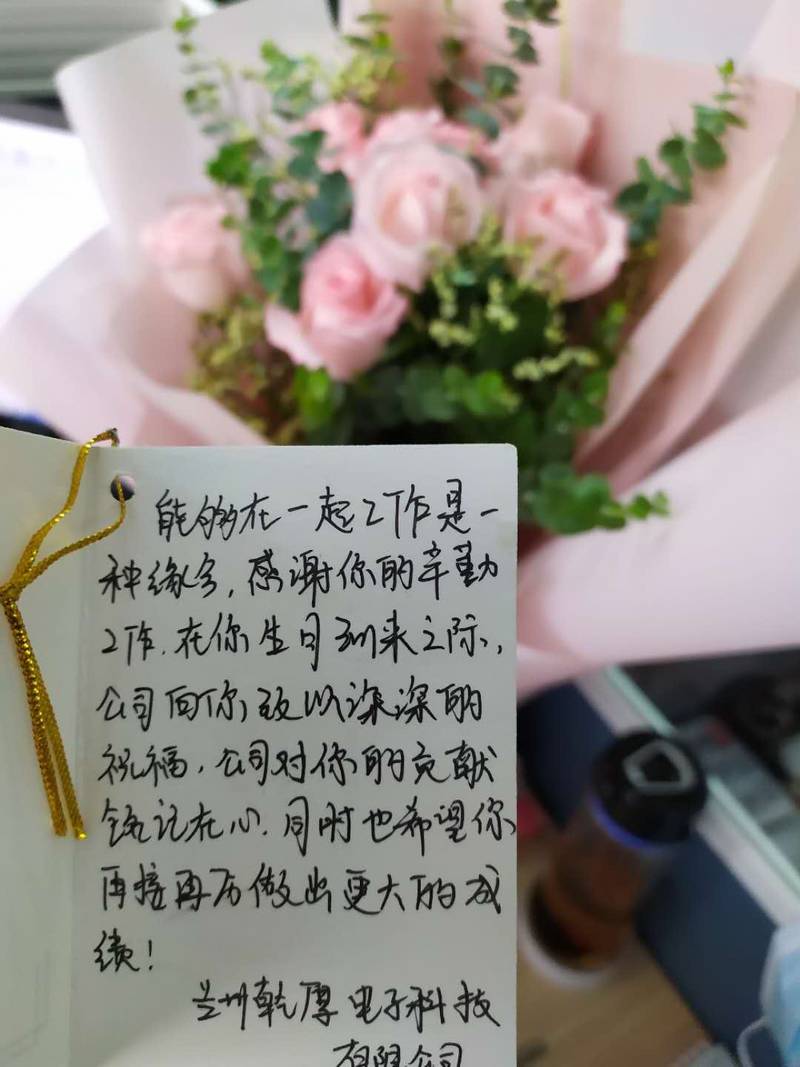 能够在一起工作是一
种缘分,感谢你的辛勤
工作.在你生日到来之际,
公司向你致以深深的
祝福,公司对你的贡献
铭记在心.同时也希望你
再接再厉做出更大的成
绩!
兰州乾厚电子科技
有限公司